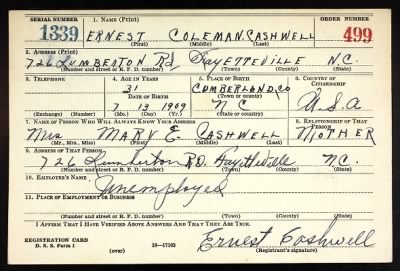 SERIAL NUMBER 1. NAME (Print) ORDER NUMBER
1339 ERNEST COLEMAN CASHWELL 499
(First) (Middle) (Last)
2. ADDRESS (Print)
726 Lumberton Rd, Fayetteville N.C.
(Number and street or R. F. D. number) (Town) (County) (State)
3. TELEPHONE 4. AGE IN YEARS 5. PLACE OF BIRTH 6. COUNTRY OF CITIZENSHIP
31 CUMBERLAND, CO
DATE OF BIRTH (Town or county)
7 13 1909 NC U.S.A
(Exchange) (Number) (Mo.) (Day) (Yr.) (State or country)
7. NAME OF PERSON WHO WILL ALWAYS KNOW YOUR ADDRESS 8. RELATIONSHIP OF THAT PERSON
Mrs MARY E. CASHWELL MOTHER
(Mr., Mrs., Miss) (First) (Middle) (Last)
9. ADDRESS OF THAT PERSON
726 Lumberton RD. Fayetteville N.C.
(Number and street or R. F. D. number) (Town) (County) (State)
10. EMPLOYER'S NAME
Unemployed
11. PLACE OF EMPLOYMENT OR BUSINESS
(Number and street or R. F. D. number) (Town) (County) (State)
I AFFIRM THAT I HAVE VERIFIED ABOVE ANSWERS AND THAT THEY ARE TRUE.
REGISTRATION CARD
D. S. S. Form 1 (over) 16—17105 Ernest Cashwell
(Registrant's signature)